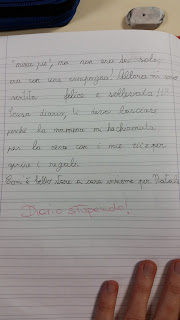 "nevina più", ma non era da sola,
ma con una compagna! Allora mi sono
sentita felice e sollevata.
Scusa diario, ti devo lasciare
perché la mamma mi ha chiamata
per la cena con i miei zii e per
aprire i regali.
Com'è bello stare a casa insieme per Natale!
Diario stupendo!